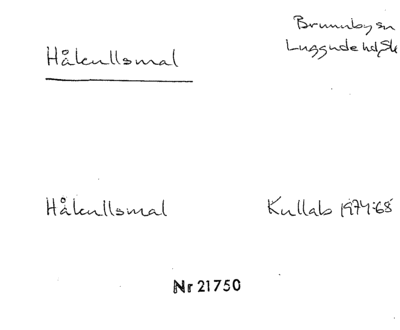 Håkullsmal
Brunnby sn
Luggude hd, Sk
Håkullsmal
Kullab 1974:68
Nr 21750